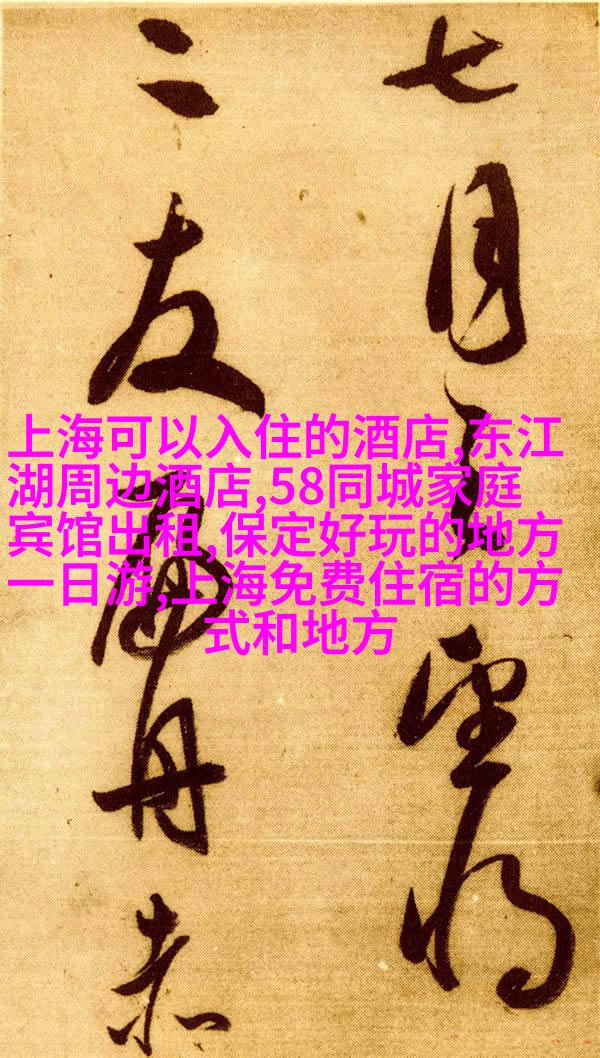 七月望将
二友扁舟赤
上海可以入住的酒店,东江
湖周边酒店,58同城家庭
宾馆出租,保定好玩的地方
一日游,上海免费住宿的方
式和地方